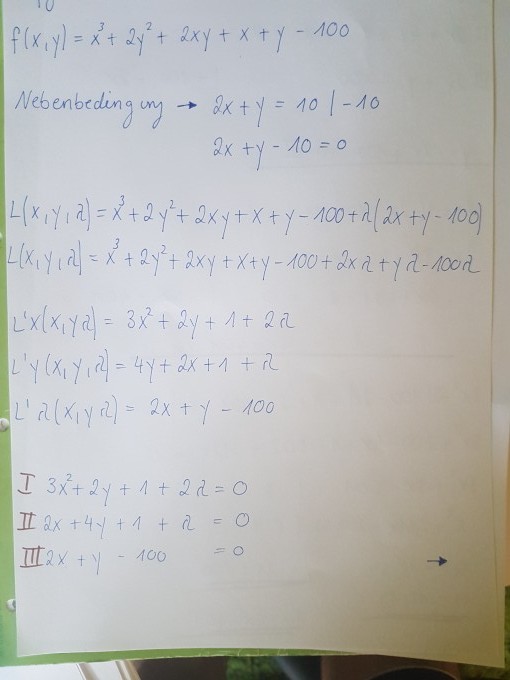 f(x,y) = x³ + 2y² + 2xy + x + y - 100
Nebenbedingung → 2x + y = 10 | -10
2x + y - 10 = 0
L(x,y,λ) = x³ + 2y² + 2xy + x + y - 100 + λ(2x + y - 100)
L(x,y,λ) = x³ + 2y² + 2xy + x + y - 100 + 2xλ + yλ - 100λ
L'x(x,yλ) = 3x² + 2y + 1 + 2λ
L'y(x,y,λ) = 4y + 2x + 1 + λ
L'λ(x,yλ) = 2x + y - 100
I 3x² + 2y + 1 + 2λ = 0
II 2x + 4y + 1 + λ = 0
III 2x + y - 100 = 0
→